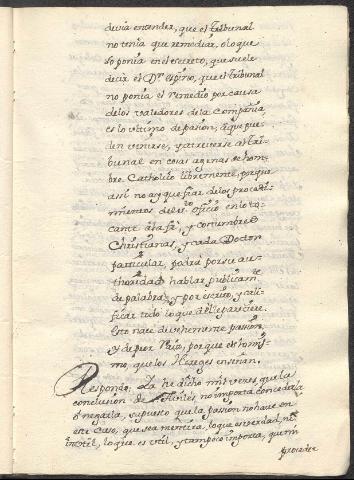 devia entender, que el Tribunal
no tenia que remediar, o lo que
lo ponia en el secreto, que suele
decir el Dr. espino, que el Tribunal
no ponia el remedio por causa
de los valedores de la Compañia,
es lo ultimo de pasion, a que pue-
den venirse, y atreverse al tri-
bunal en cosas agenas de hom-
bre Catholico libremente, porque
assi no ay que fiar de los procedi-
mientos del sto. oficio en lo to-
cante a la fè, y costumbres
Christianas, y cada Doctor
particular, podrà por su au-
thoridad hablar publicamte.
de palabra, y por escrito, y cali-
ficar todo lo que a èl le pareciere.
Esto nace de vehemente pasion,
y de peor que es lo mis-
mo, que los Hereges enseñan.
Respondo. Ya he dicho mil veres, que la
conclusion de no importa concederla
ò negarla, supuesto que la pasion no have en
este caso, que sea mentira, lo que es verdad, ni
inutil, lo que es util, y tampoco importa, que mi
proceder